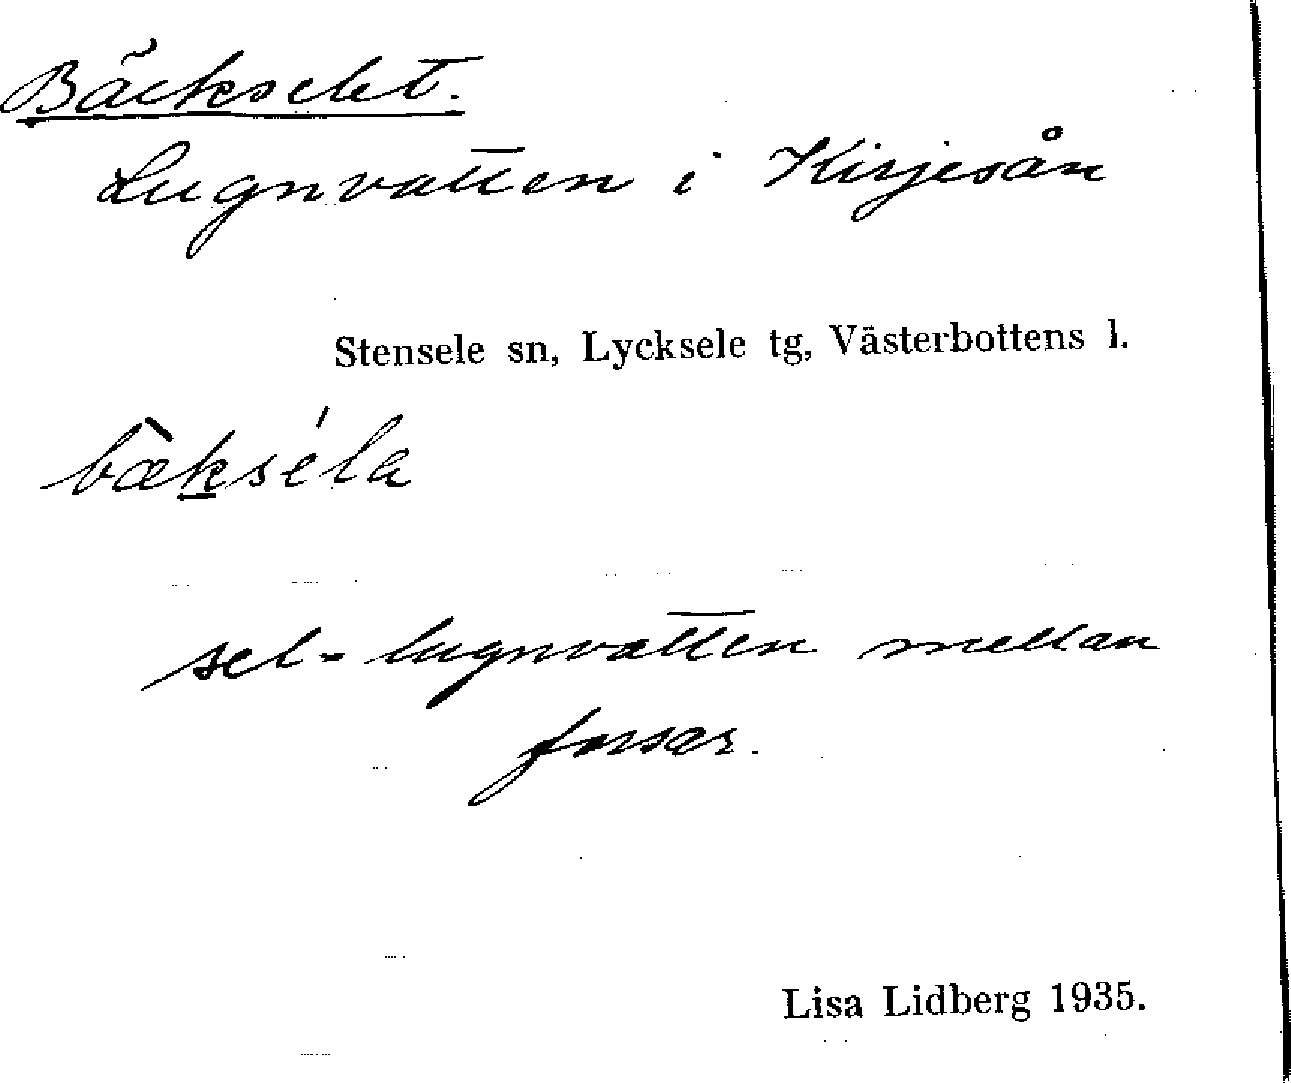 Bäckselet.
Lugnvatten i Kirjesån
Stensele sn, Lycksele tg, Västerbottens l.
bækséla
sel - lugnvatten mellan
forsar.
Lisa Lidberg 1935.